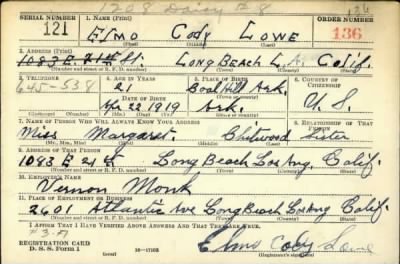 1208 Daisy #8 136
SERIAL NUMBER 1. NAME (Print) ORDER NUMBER
121 ELMO Cody LOWE 136
(First) (Middle) (Last)
2. ADDRESS (Print)
1083 E. 21st St. LONG BEACH L.A. Calif.
(Number and street or R. F. D. number) (Town) (County) (State)
3. TELEPHONE 4. AGE IN YEARS 5. PLACE OF BIRTH 6. COUNTRY OF CITIZENSHIP
645-538 21 Coal Hill Ark.
DATE OF BIRTH
22 1919 Ark. U. S.
(Exchange) (Number) (Mo.) (Day) (Yr.) (State or country)
7. NAME OF PERSON WHO WILL ALWAYS KNOW YOUR ADDRESS 8. RELATIONSHIP OF THAT PERSON
Miss Margaret Chitwood Sister
(Mr., Mrs., Miss) (First) (Middle) (Last)
9. ADDRESS OF THAT PERSON
1083 E 21 st Long Beach Los Ang. Calif.
(Number and street or R. F. D. number) (Town) (County) (State)
10. EMPLOYER'S NAME
Vernon Monk
11. PLACE OF EMPLOYMENT OR BUSINESS
2601 Atlantic Ave Long Beach Los Ang Calif.
(Number and street or R. F. D. number) (Town) (County) (State)
I AFFIRM THAT I HAVE VERIFIED ABOVE ANSWERS AND THAT THEY ARE TRUE.
REGISTRATION CARD Elmo Cody Lowe
D. S. S. Form 1 (over) 16—17105 (Registrant's signature)